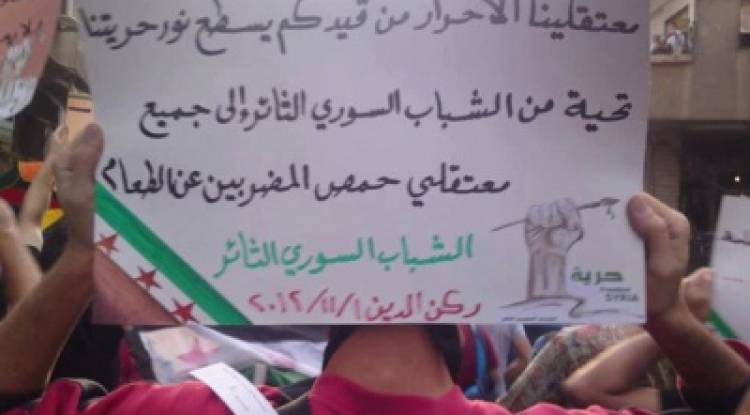 معتقلينا الأحرار من قيدكم يسطع نور حريتنا
تحية من الشباب السوري الثائر إلى جميع
معتقلي حمص المضربين عن الطعام
الشباب السوري الثائر
ركن الدين ٢٠١٢/١١/١
حرية
Freedom
SYRIA